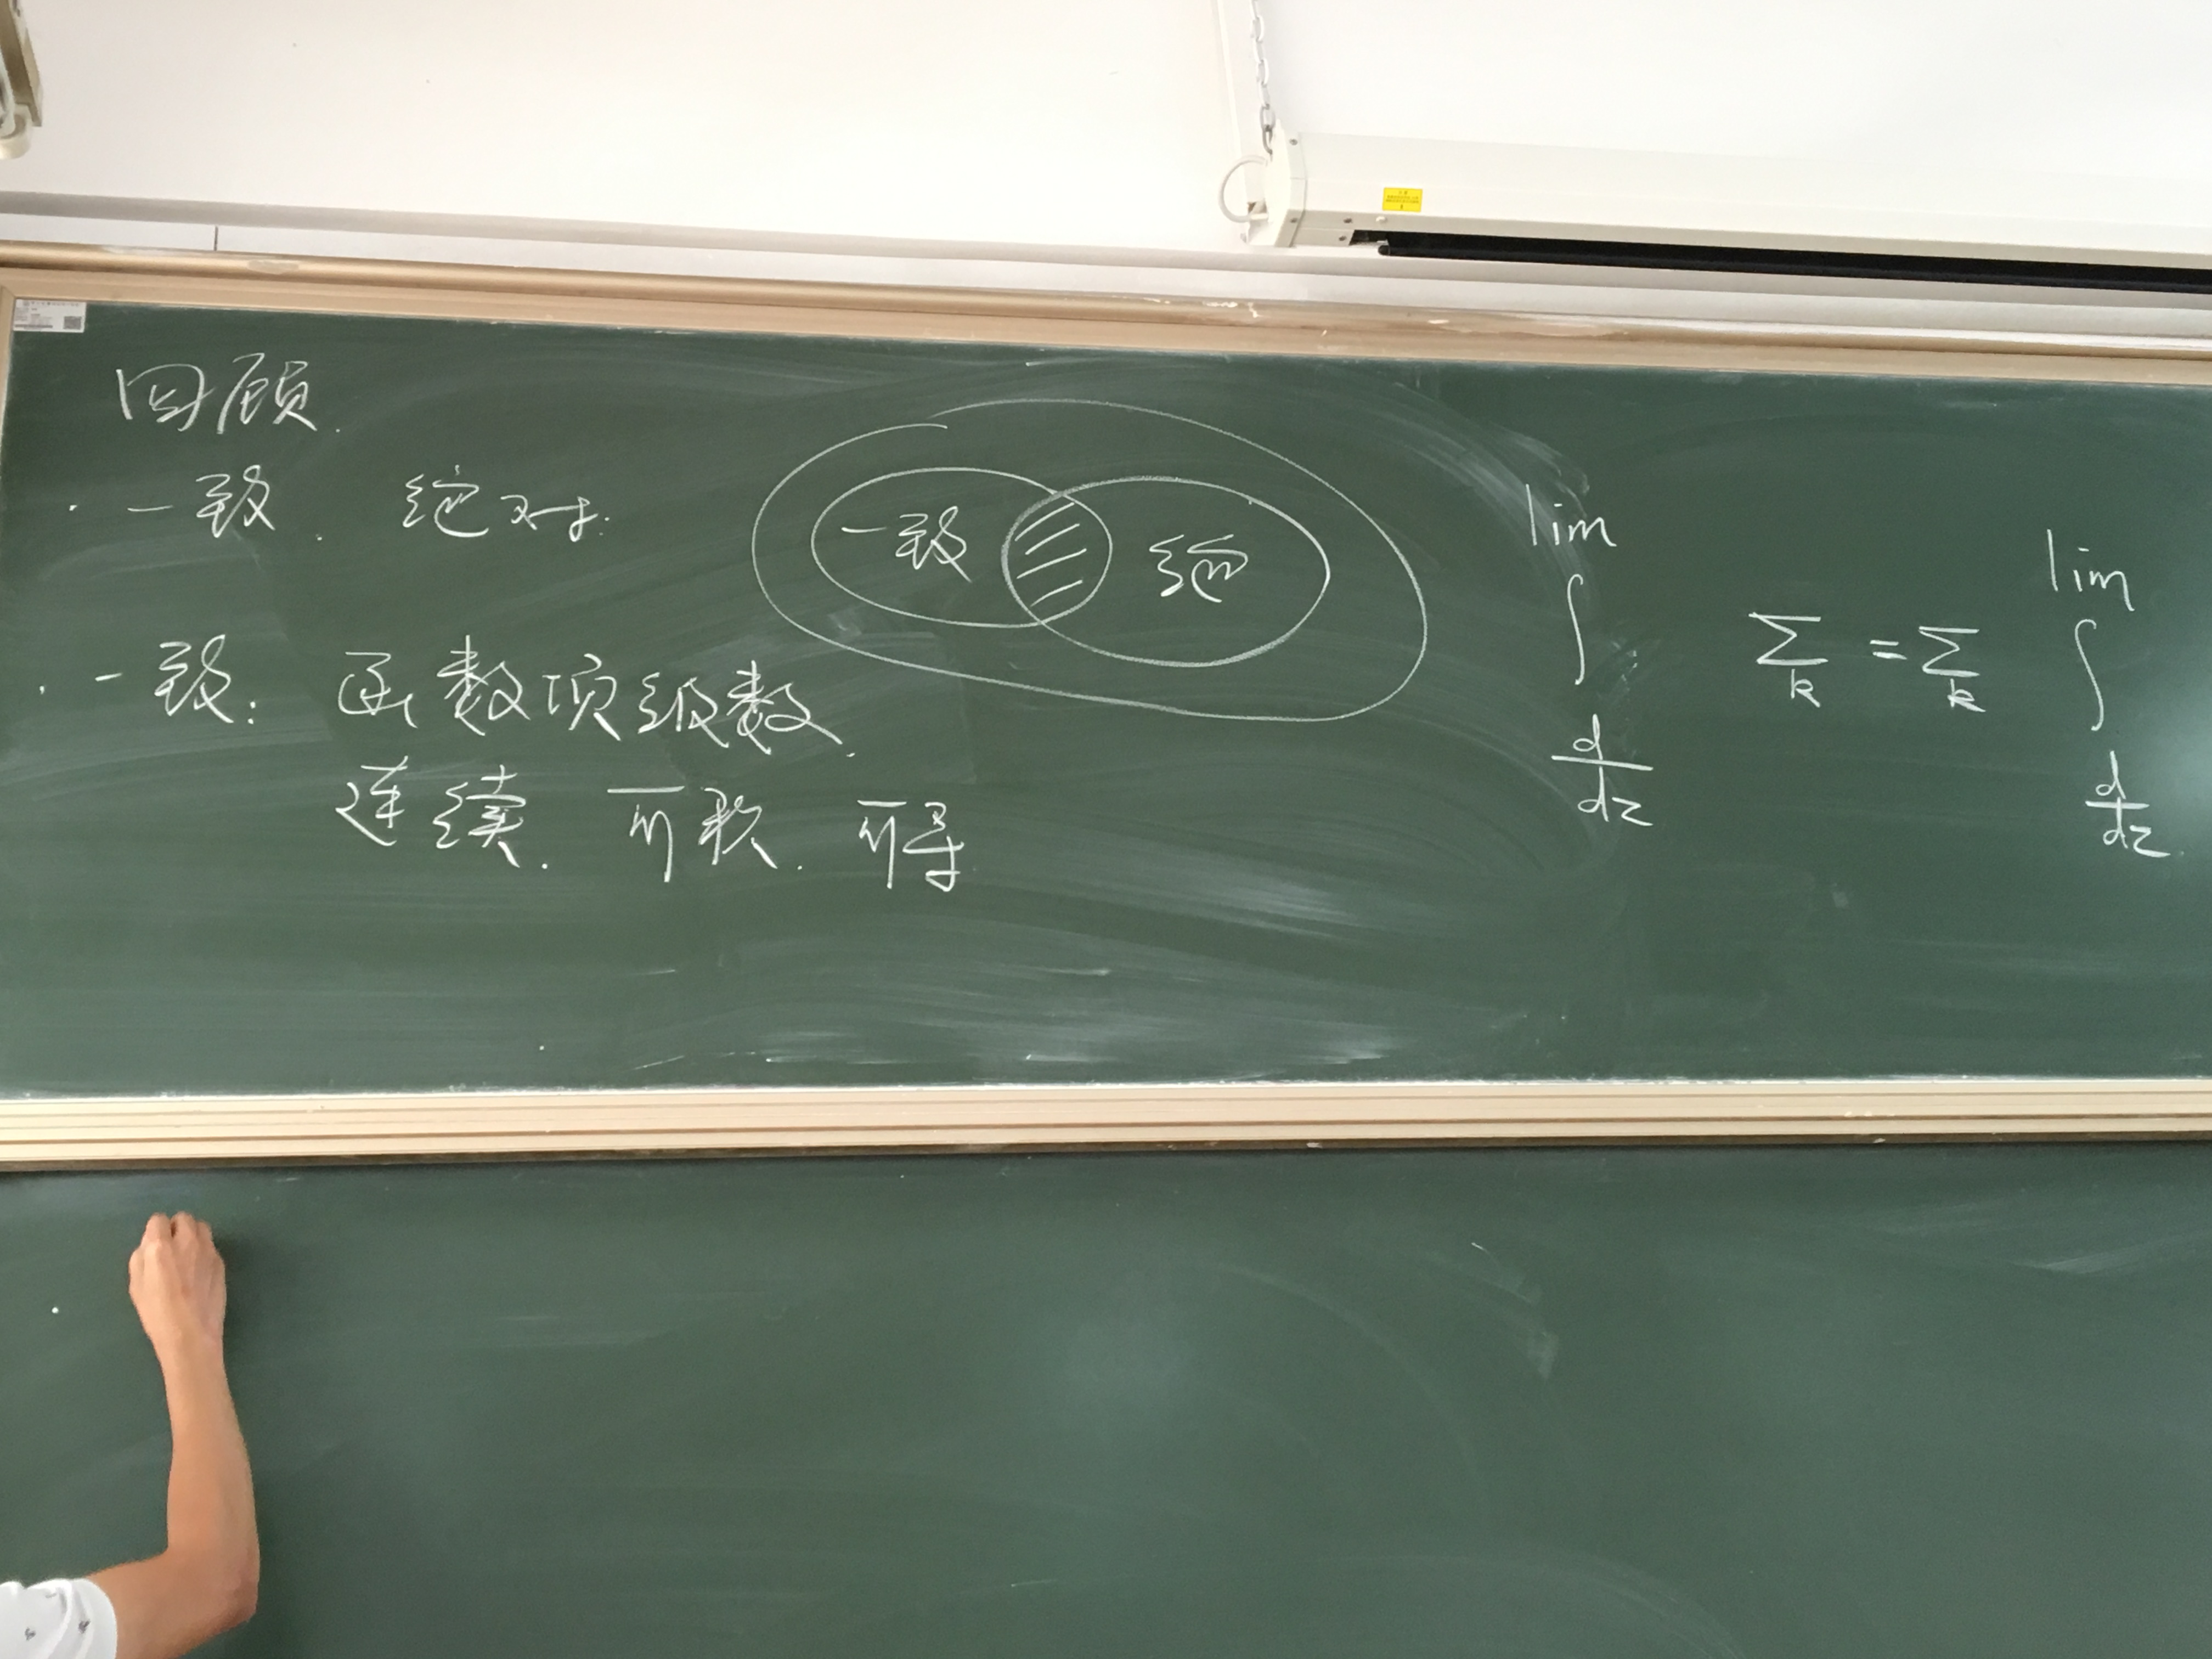 回顾.
· 一致. 绝对.
一致 绝
· 一致: 函数项级数.
连续. 可积. 可导
lim lim
∫ ∑k = ∑k ∫
d/dz d/dz.